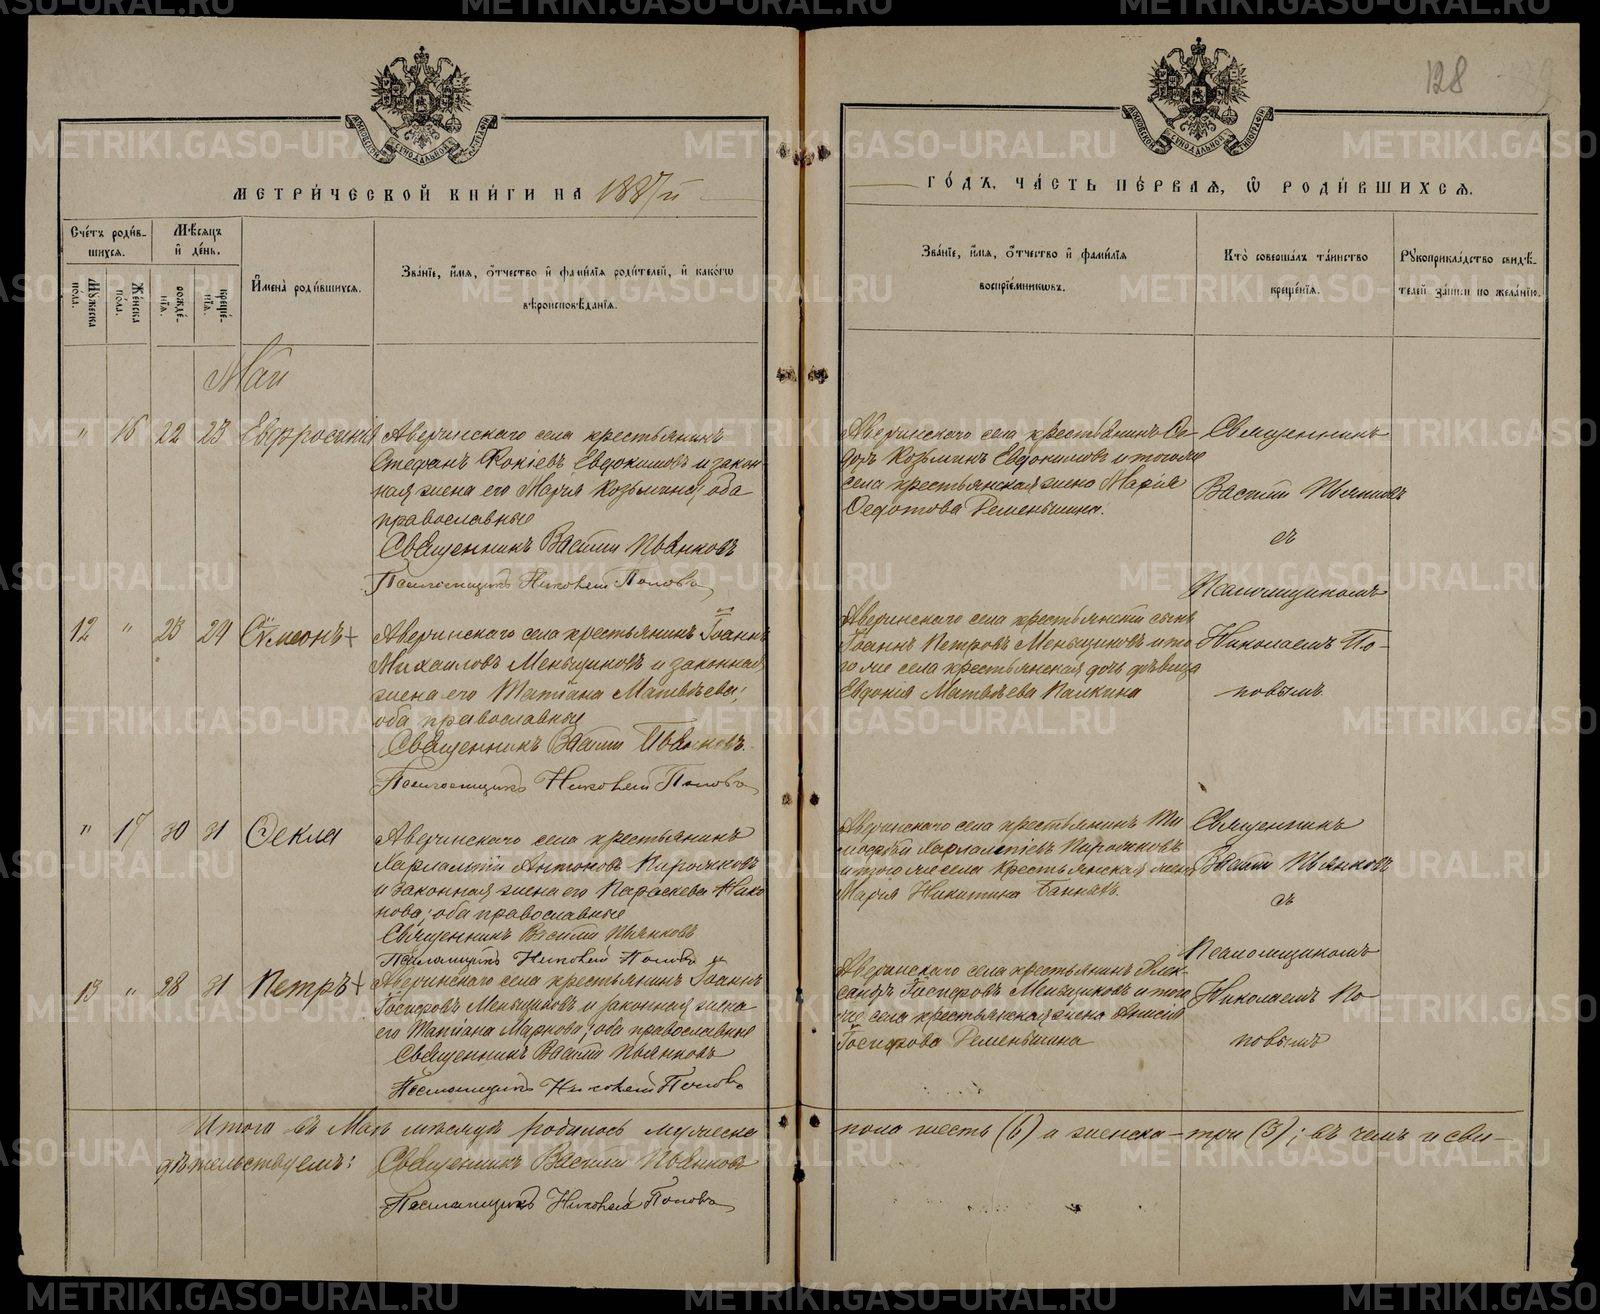 128
МЕТРИ́ЧЕСКОЙ КНИ́ГИ НА 1887й
ГО́ДЪ, ЧА́СТЬ ПЕ́РВАЯ, Ѡ҆ РОДИ́ВШИХСЯ.
Сче́тъ роди́в-
шихся.
Мꙋ́жеска по́ла.
Же́нска по́ла.
Мѣ́сяцъ и҆ де́нь.
рожде́нїя.
креще́нїя.
И҆мена̀ роди́вшихся.
Зва́нїе, и҆́мя, ѻ҆́тчество и҆ фами́лїя роди́телей, и҆ како́гѡ
вѣроисповѣ́данїя.
Зва́нїе, и҆́мя, ѻ҆́тчество и҆ фами́лїя
воспрїе́мникѡвъ.
Кто̀ соверша́лъ та́инство
креще́нїя.
Рꙋкоприкла́дство свидѣ́-
телей за́писи по жела́нїю.
Май
" 16 22 23 Евфросинія
Аверинскаго села крестьянинъ
Стефанъ Фокіевъ Евдокимовъ и закон-
ная жена его Марія Козьмина; оба
православные
Священникъ Василій Пьянковъ
Псаломщикъ Николай Поповъ
Аверинскаго села крестьянинъ Ѳе-
доръ Козьминъ Евдокимовъ и тогоже
села крестьянская жена Марія
Ѳедотова Деменьшина.
Священникъ
Василій Пьянковъ
съ
Псаломщикомъ
Николаемъ По-
повымъ
12 " 23 29 Сѵмеонъ+
Аверинскаго села крестьянинъ Іоаннъ
Михаиловъ Меньщиковъ и законная
жена его Татіана Матвѣева;
оба православные
Священникъ Василій Пьянковъ.
Псаломщикъ Николай Поповъ
Аверинскаго села крестьянскій сынъ
Іоаннъ Петровъ Меньщиковъ и то-
го же села крестьянская дочь дѣвица
Евдокія Матвѣева Палкина
" 17 30 31 Ѳекла
Аверинскаго села крестьянинъ
Харлампій Антоновъ Пирожковъ
и законная жена его Параскева Нико-
нова; оба православные
Священникъ Василій Пьянковъ
Псаломщикъ Николай Поповъ
Аверинскаго села крестьянинъ Ти-
моѳей Харлампіевъ Пирожковъ
и того же села крестьянская жена
Марія Никитина
Священникъ
Василій Пьянковъ
съ
Псаломщикомъ
Николаемъ По-
повымъ
13 " 28 31 Петръ+
Аверинскаго села крестьянинъ Іоаннъ
Іосифовъ Меньщиковъ и законная жена
его Татіана Маркова; оба православные
Священникъ Василій Пьянковъ
Псаломщикъ Николай Поповъ
Аверинскаго села крестьянинъ Алек-
сандръ Іосифовъ Меньщиковъ и того
же села крестьянская жена Анисія
Іосифова Деменьшина
Итого въ Маѣ мѣсяцѣ родилось мужеска
пола шесть (6) а женска – три (3); въ чемъ и сви-
дѣтельствуемъ:
Священникъ Василій Пьянковъ
Псаломщикъ Николай Поповъ
METRIKI.GASO-URAL.RU